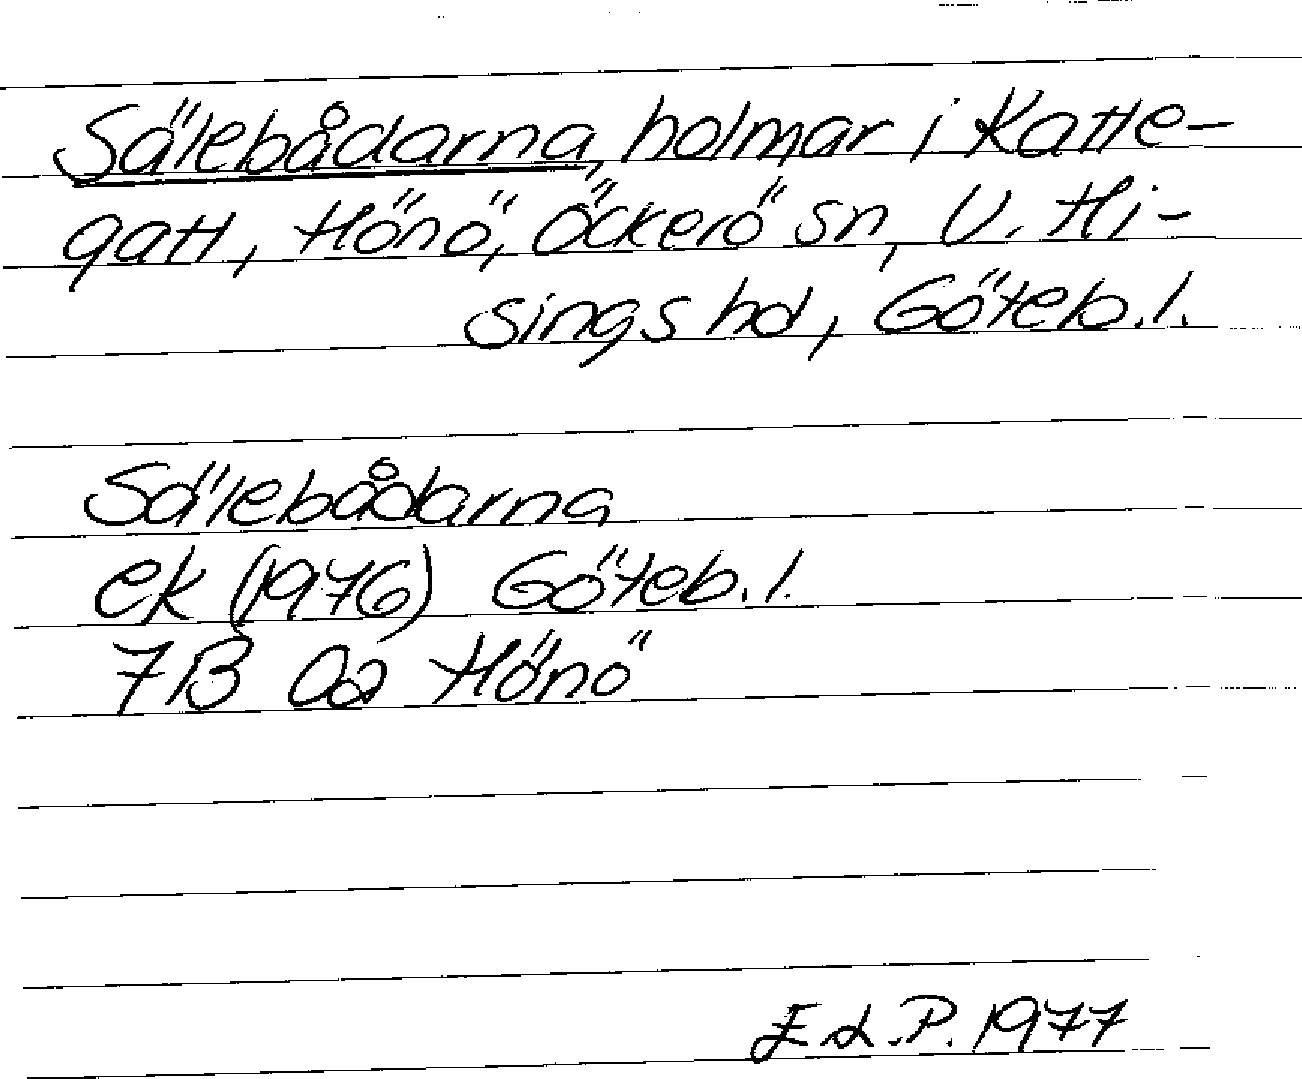 Sälebådarna, holmar i Katte-
gatt, Hönö, Öckerö sn, V. Hi-
sings hd, Göteb. l.
Sälebådarna
ek (1976) Göteb. l.
7B 0a Hönö
E.L.P. 1977